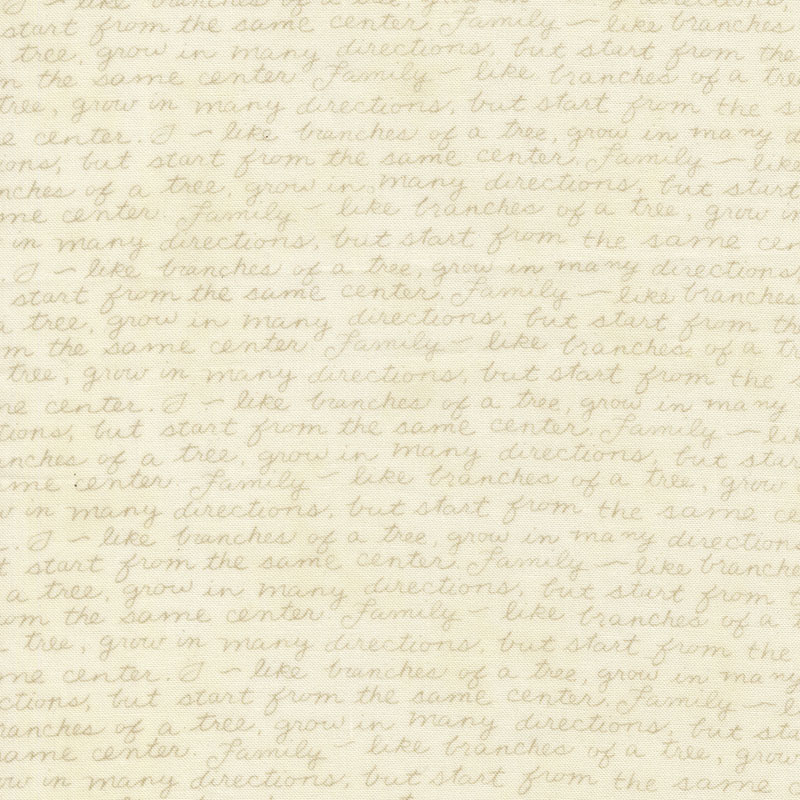 - like branches of a tree, grow in many directions,
start from the same center Family - like branches
tree, grow in many directions, but start from the
m the same center Family - like branches of a tree
tree, grow in many directions, but start from the s
e center. J - like branches of a tree, grow in many d
ions, but start from the same center. Family - like
nches of a tree, grow in many directions, but start
me center. Family - like branches of a tree, grow in
in many directions, but start from the same cen
. J - like branches of a tree, grow in many directions,
start from the same center. Family - like branches
a tree, grow in many directions, but start from th
m the same center Family - like branches of a tr
tree, grow in many directions, but start from the s
ne center. J - like branches of a tree, grow in many
tions, but start from the same center. Family - lik
anches of a tree, grow in many directions, but star
ame center. Family - like branches of a tree, grow
w in many directions, but start from the same ce
. J - like branches of a tree, grow in many directions
t start from the same center. Family - like branche
a tree, grow in many directions, but start from t
om the same center Family - like branches of a t
tree, grow in many directions, but start from the
me center. J - like branches of a tree, grow in many
ctions, but start from the same center. Family - l
ranches of a tree, grow in many directions, but sta
same center. Family - like branches of a tree, grow
ow in many directions, but start from the same c